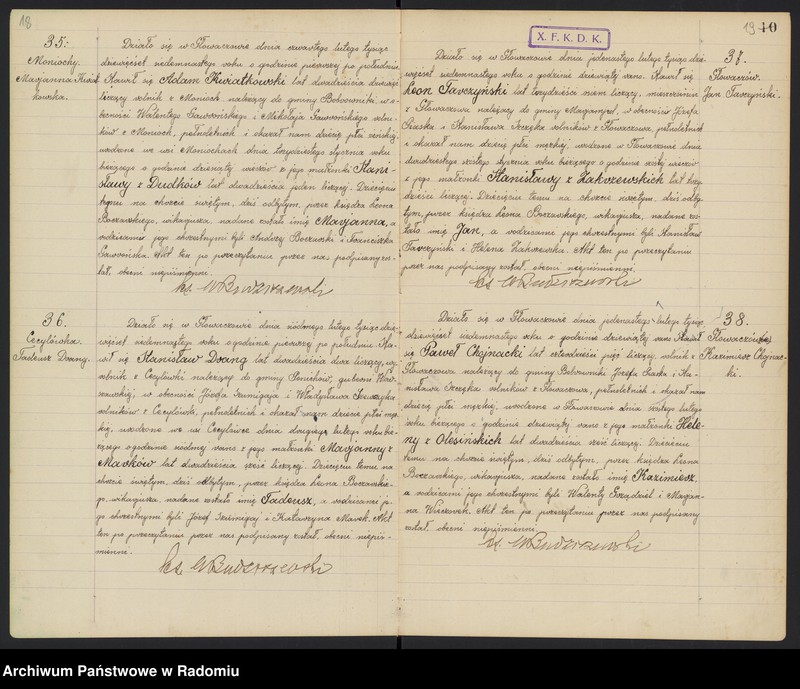 18
35.
Moniochy.
Marjanna Kwiat-
kowska.
Działo się w Głowaczowie dnia czwartego lutego tysiąc
dziewięćset siedemnastego roku o godzinie pierwszej po południu.
Stawił się Adam Kwiatkowski lat dwadzieścia dziewięć
liczący rolnik z Monioch należącej do gminy Bobrowniki, w o-
becności Walentego i Mikołaja rolni-
ków z Monioch, pełnoletnich i okazał nam dziecię płci żeńskiej
urodzone we wsi Moniochach dnia trzydziestego stycznia roku
bieżącego o godzinie dziesiątej wieczór z jego małżonki Stani-
sławy z Dudków lat dwadzieścia jeden liczącej. Dziecięciu
temu na chrzcie świętym, dziś odbytym, przez księdza Leona
Boczarskiego, wikarjusza, nadane zostało imię Marjanna, a
rodzicami jego chrzestnymi byli Andrzej Boczarski i Franciszka
Akt ten po przeczytaniu przez nas podpisany zo-
stał, obecni niepiśmienni.
ks.
36.
Cecylówka.
Tadeusz Drang.
Działo się w Głowaczowie dnia siódmego lutego tysiąc dzie-
więćset siedemnastego roku o godzinie pierwszej po południu. Sta-
wił się Stanisław Drang lat dwadzieścia dwa liczący, wy-
robnik z Cecylówki należącej do gminy gubernii War-
szawskiej, w obecności Józefa i Władysława
rolników z Cecylówki, pełnoletnich i okazał nam dziecię płci mę-
skiej, urodzone we wsi Cecylówce dnia drugiego lutego roku bie-
żącego o godzinie siódmej rano z jego małżonki Marjanny z
Marków lat dwadzieścia sześć liczącej. Dziecięciu temu na
chrzcie świętym, dziś odbytym, przez księdza Leona Boczarskie-
go, wikarjusza, nadane zostało imię Tadeusz, a rodzicami je-
go chrzestnymi byli Józef i Katarzyna Marek. Akt
ten po przeczytaniu przez nas podpisany został, obecni niepiś-
mienni.
ks.
X. F. K. D. K.
19 10
37.
Głowaczów.
Jan Tarczyński.
Działo się w Głowaczowie dnia jedenastego lutego tysiąc dzie-
więćset siedemnastego roku o godzinie dziewiątej rano. Stawił się
Leon Tarczyński lat trzydzieści osiem liczący, mieszczanin
z Głowaczowa należącej do gminy Marjampol, w obecności Józefa
Siaska i Stanisława rolników z Głowaczowa, pełnoletnich
i okazał nam dziecię płci męskiej, urodzone w Głowaczowie dnia
dwudziestego szóstego stycznia roku bieżącego o godzinie szóstej wieczór
z jego małżonki Stanisławy z Zakrzewskich lat trzy-
dzieści liczącej. Dziecięciu temu na chrzcie świętym, dziś odby-
tym, przez księdza Leona Boczarskiego, wikarjusza, nadane zo-
stało imię Jan, a rodzicami jego chrzestnymi byli Stanisław
Tarczyński i Helena Zakrzewska. Akt ten po przeczytaniu
przez nas podpisany został, obecni niepiśmienni.
ks.
38.
Głowaczów.
Kazimierz Chojnac-
ki.
Działo się w Głowaczowie dnia jedenastego lutego tysiąc
dziewięćset siedemnastego roku o godzinie dziewiątej rano. Stawił
się Paweł Chojnacki lat czterdzieści pięć liczący, rolnik z
Głowaczowa należącej do gminy Bobrowniki Józefa Siaska i Sta-
nisława rolników z Głowaczowa, pełnoletnich i okazał nam
dziecię płci męskiej, urodzone w Głowaczowie dnia szóstego lutego
roku bieżącego o godzinie dziewiątej rano z jego małżonki Hele-
ny z Olesińskich lat dwadzieścia sześć liczącej. Dziecięciu
temu na chrzcie świętym, dziś odbytym, przez księdza Leona
Boczarskiego, wikarjusza, nadane zostało imię Kazimierz,
a rodzicami jego chrzestnymi byli Walenty i Marjan-
na Wieczorek. Akt ten po przeczytaniu przez nas podpisany
został, obecni niepiśmienni.
ks.
Archiwum Państwowe w Radomiu